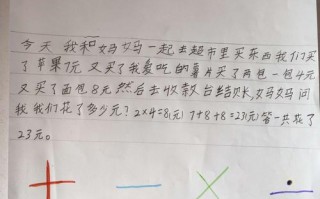 今天我和妈妈一起去超市里买东西我们买
了苹果7元又买了我爱吃的薯片买了两包一包4元
又买了面包8元然后去收款台结账,妈妈问
我我们花了多少元?2×4=8(元) 7+8+8=23(元)答一共花了
23元。
+ − × ÷